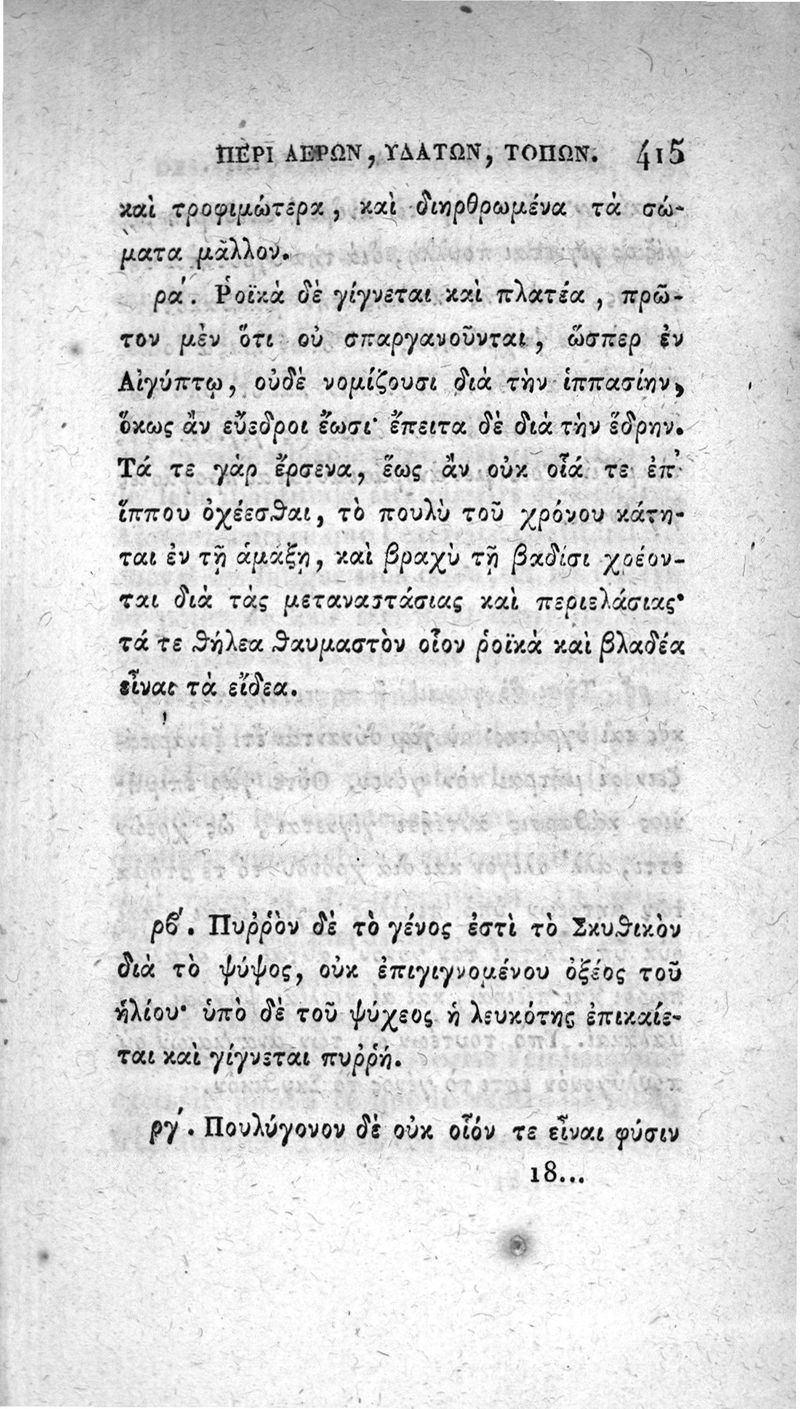 ΠΕΡΙ ΑΕΡΩΝ, ΥΔΑΤΩΝ, ΤΟΠΩΝ. 415
καὶ τροφιμώτερα, καὶ διηρθρωμένα τὰ σώ-
ματα μᾶλλον.
ρα΄. Ῥοϊκὰ δὲ γίγνεται καὶ πλατέα, πρῶ-
τον μὲν ὅτι οὐ σπαργανοῦνται, ὥσπερ ἐν
Αἰγύπτῳ, οὐδὲ νομίζουσι διὰ τὴν ἱππασίην,
ὅκως ἂν εὔεδροι ἔωσι· ἔπειτα δὲ διὰ τὴν ἕδρην.
Τά τε γὰρ ἔρσενα, ἕως ἂν οὐκ οἷά τε ἐπ'
ἵππου ὀχέεσθαι, τὸ πουλὺ τοῦ χρόνου κάτη-
ται ἐν τῇ ἁμάξῃ, καὶ βραχὺ τῇ βαδίσι χρέον-
ται διὰ τὰς μεταναστάσιας καὶ περιελάσιας·
τά τε θήλεα θαυμαστὸν οἷον ῥοϊκὰ καὶ βλαδέα
εἶναι τὰ εἴδεα.
ρϐ΄. Πυῤῥὸν δὲ τὸ γένος ἐστὶ τὸ Σκυθικὸν
διὰ τὸ ψύψος, οὐκ ἐπιγιγνομένου ὀξέος τοῦ
ἡλίου· ὑπὸ δὲ τοῦ ψύχεος ἡ λευκότης ἐπικαίε-
ται καὶ γίγνεται πυῤῥή.
ργ΄. Πουλύγονον δὲ οὐκ οἷόν τε εἶναι φύσιν
18...